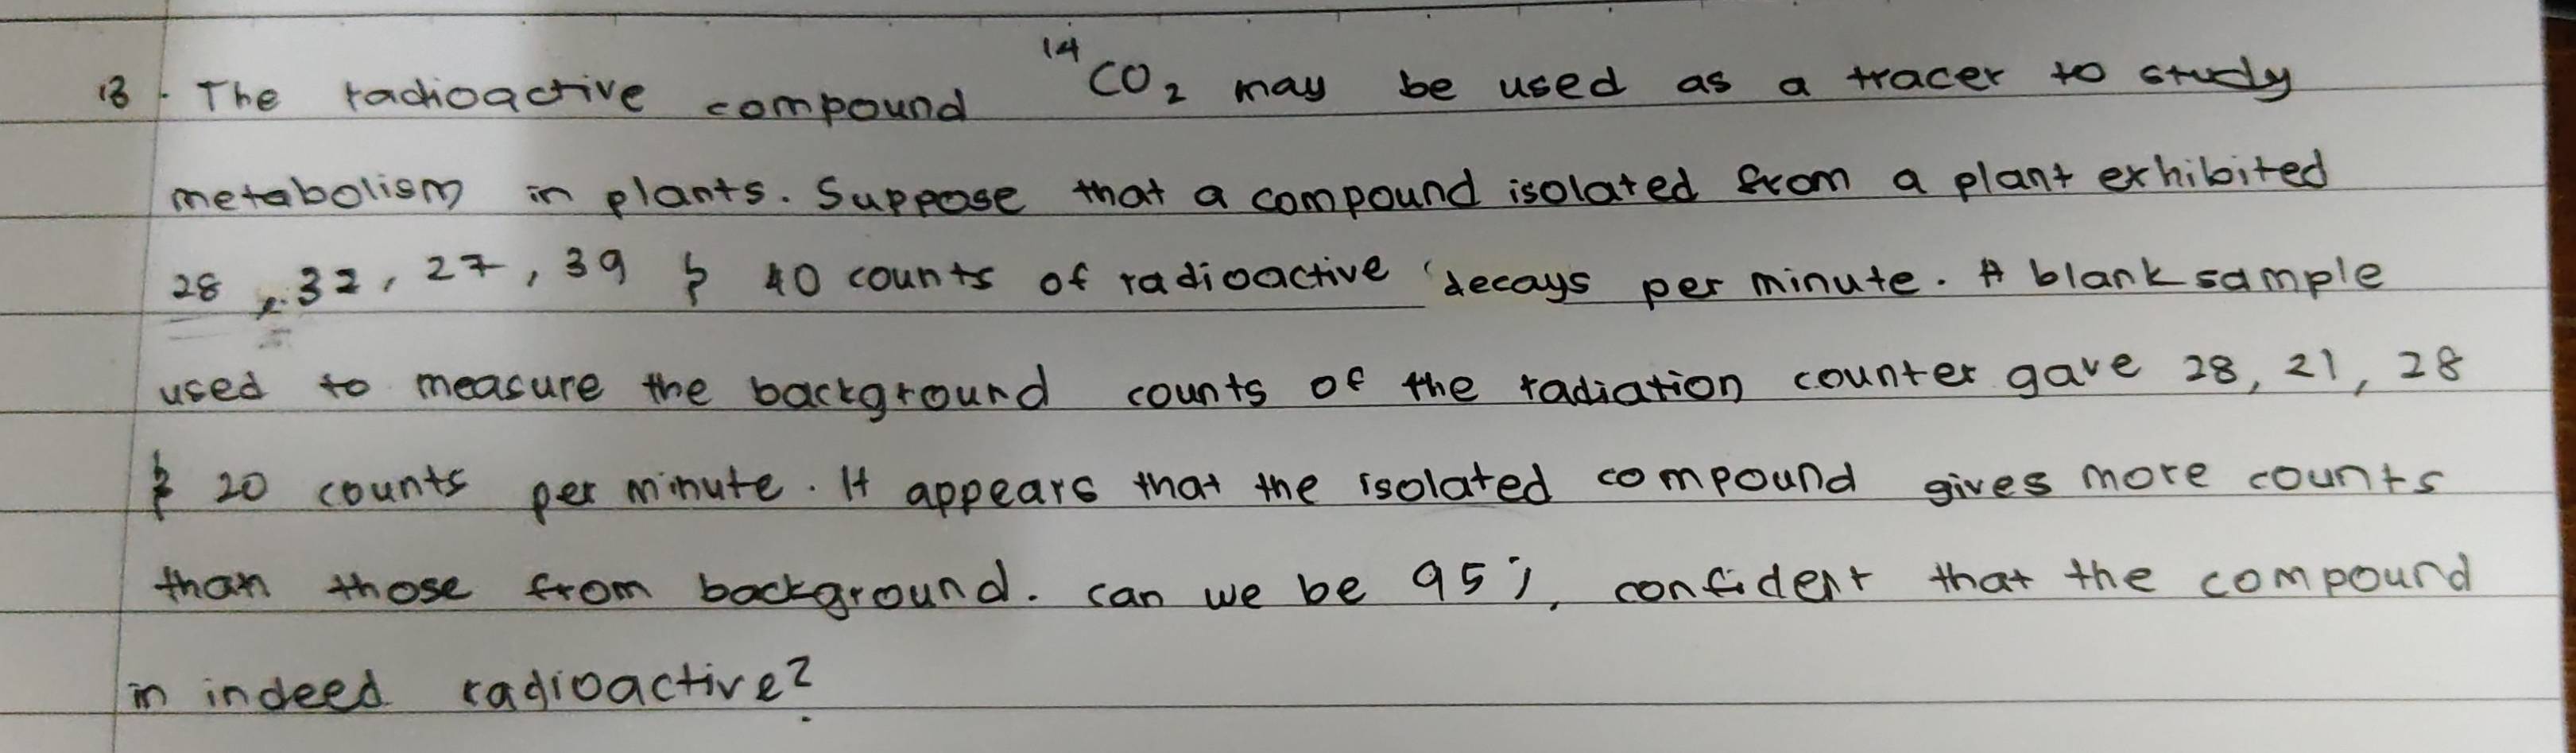 13. The radioactive compound ¹⁴CO₂ may be used as a tracer to study
metabolism in plants. Suppose that a compound isolated from a plant exhibited
28, 32, 27, 39 & 40 counts of radioactive decays per minute. A blank sample
used to measure the background counts of the radiation counter gave 28, 21, 28
& 20 counts per minute. It appears that the isolated compound gives more counts
than those from background. can we be 95% confident that the compound
in indeed radioactive?